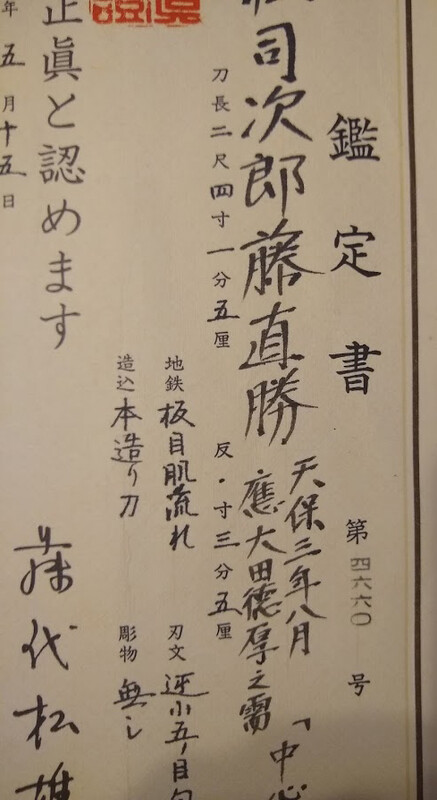 鑑定書
第四六六〇号
天保三年八月「中心
應大田徳厚之需
司次郎藤直勝
刀長二尺四寸一分五厘 反・寸三分五厘
地鉄 板目肌流れ 刃文 逆小五ノ目匂
造込 本造り刀 彫物 無し
正眞と認めます
年五月十五日
藤代松雄